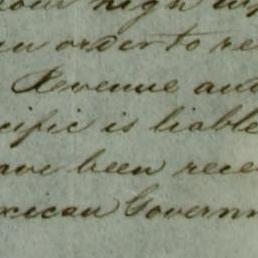 your high im
en order to re
Revenue and
cific is liable
ave been rece
exican Governm